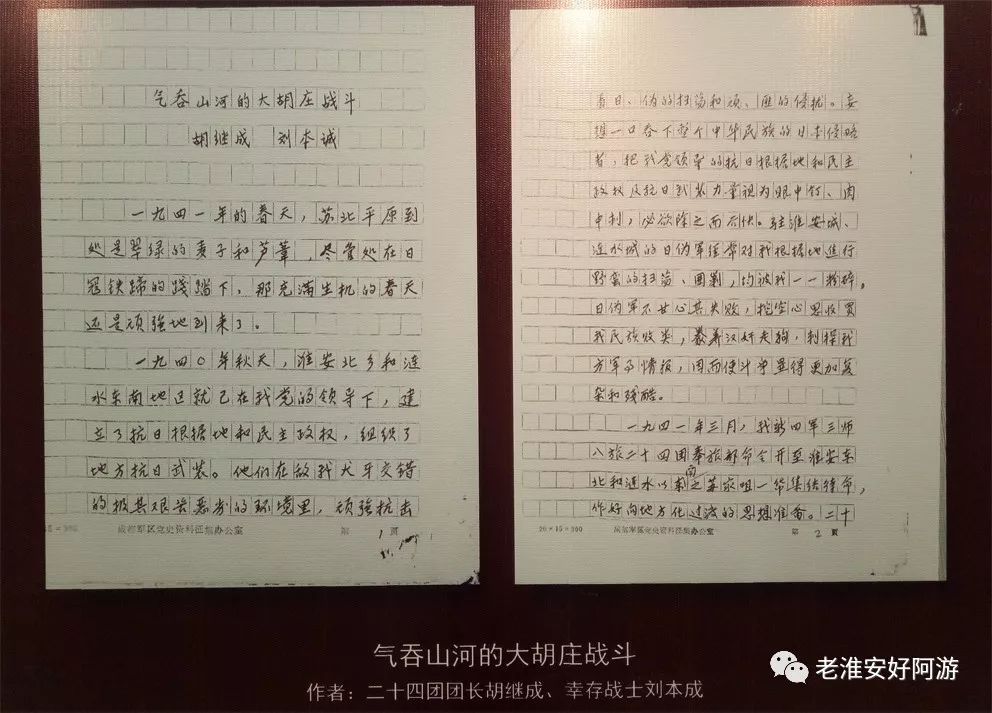 气吞山河的大胡庄战斗
胡继成 刘本诚
一九四一年的春天，苏北平原到
处是翠绿的麦子和芦苇，尽管处在日
冠铁蹄的践踏下，那充满生机的春天
还是顽强地到来了。
一九四〇年秋天，淮安北乡和涟
水东南地区就已在我党的领导下，建
立了抗日根据地和民主政权，组织了
地方抗日武装。他们在敌我犬牙交错
的极其艰苦恶劣的环境里，顽强抗击
成都军区党史资料征集办公室
第 1 页
着日、伪的扫荡和顽、匪的侵扰。妄
想一口吞下整个中华民族的日本侵略
者，把我党领导的抗日根据地和民主
政权及抗日武装力量视为眼中钉、肉
中刺，必欲除之而后快。驻淮安城、
涟水城的日伪军经常对我根据地进行
野蛮的扫荡、围剿，均被我一一粉碎。
日伪军不甘心其失败，挖空心思收买
我民族败类，豢养汉奸走狗，刺探我
方军的情报，因而使斗争显得更加复
杂和残酷。
一九四一年三月，我新四军三师
八旅二十四团奉旅部命令开至淮安东
北和涟水以南之苏家咀一带集结待命，
作好向地方化过渡的思想准备。二十
20×15=300 成都军区党史资料征集办公室 第 2 页
气吞山河的大胡庄战斗
作者：二十四团团长胡继成、幸存战士刘本成
老淮安好阿游